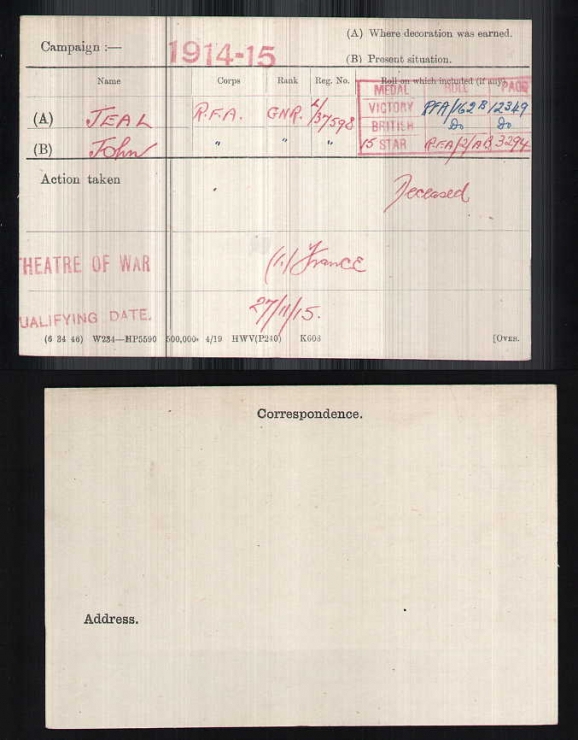 (A) Where decoration was earned.
Campaign :— 1914-15
(B) Present situation.
Name Corps Rank Reg. No. Roll on which included (if any).
MEDAL ROLL PAGE
(A) JEAL R.F.A. GNR. L/37598 VICTORY RFA/162B 12349
BRITISH Do Do
(B) John " " " 15 STAR RFA/2/AB 3294
Action taken Deceased
THEATRE OF WAR (1.) France
QUALIFYING DATE. 27/11/15.
(6 34 46) W234—HP5590 500,000- 4/19 HWV(P240) K608 [OVER.
Correspondence.
Address.